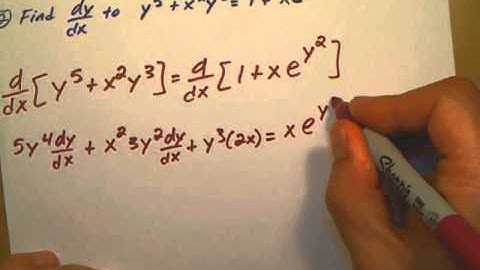 ② Find dy/dx to y⁵ + x²y³ = 1 + xe
d/dx [y⁵ + x²y³] = d/dx [1 + xe^(y²)]
5y⁴ dy/dx + x² 3y² dy/dx + y³(2x) = x e^y
Sharpie